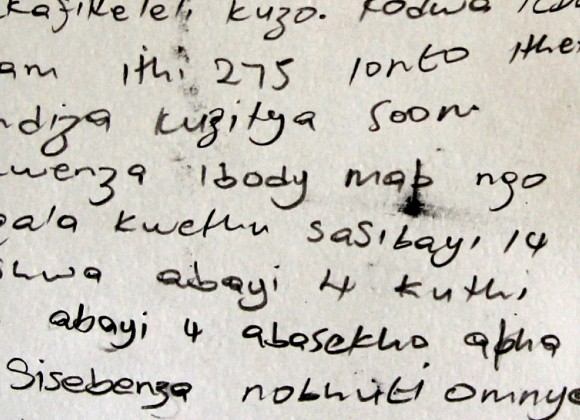 kafikeleli kuzo. kodwa
am ithi 275 lonto
ndiza kuzitya soon
wenza ibody map ngo
gala kwethu sasibayi 14
shwa abayi 4 kuthi
abayi 4 abasekho apha
Sisebenza nobhuti omnye